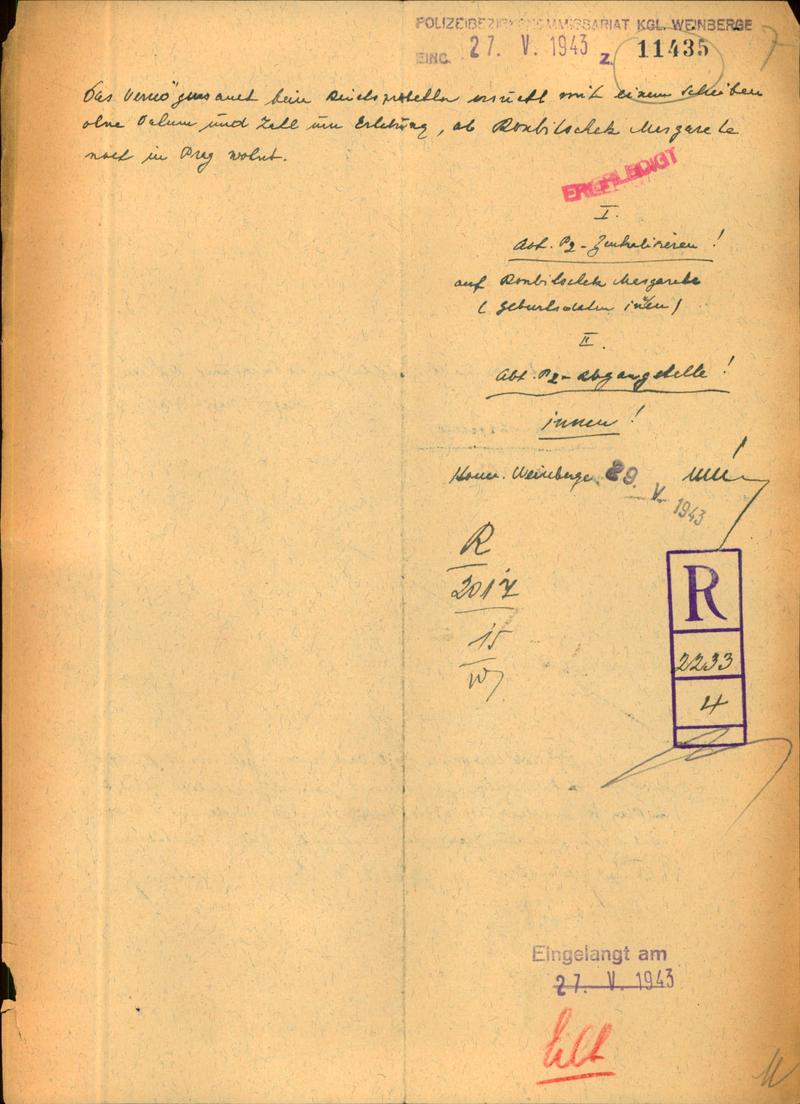 POLIZEIBEZIRKSKOMMISSARIAT KGL. WEINBERGE
EING. 27. V. 1943 Z. 11435
7
Das Vermögensamt beim Reichsprotektor ersucht mit einem Schreiben
ohne Datum und Zahl um Erhebung, ob Roubitschek Margarete
noch in Prag wohnt.
ERLEDIGT
I.
Abt. P2 - Zentralisieren!
auf Roubitschek Margarete
(Geburtsdaten innen)
II.
Abt. P2 - Abgangstelle!
innen!
Komm. Weinberge 29. V. 1943
R
2017
15
R
2233
4
Eingelangt am
27. V. 1943